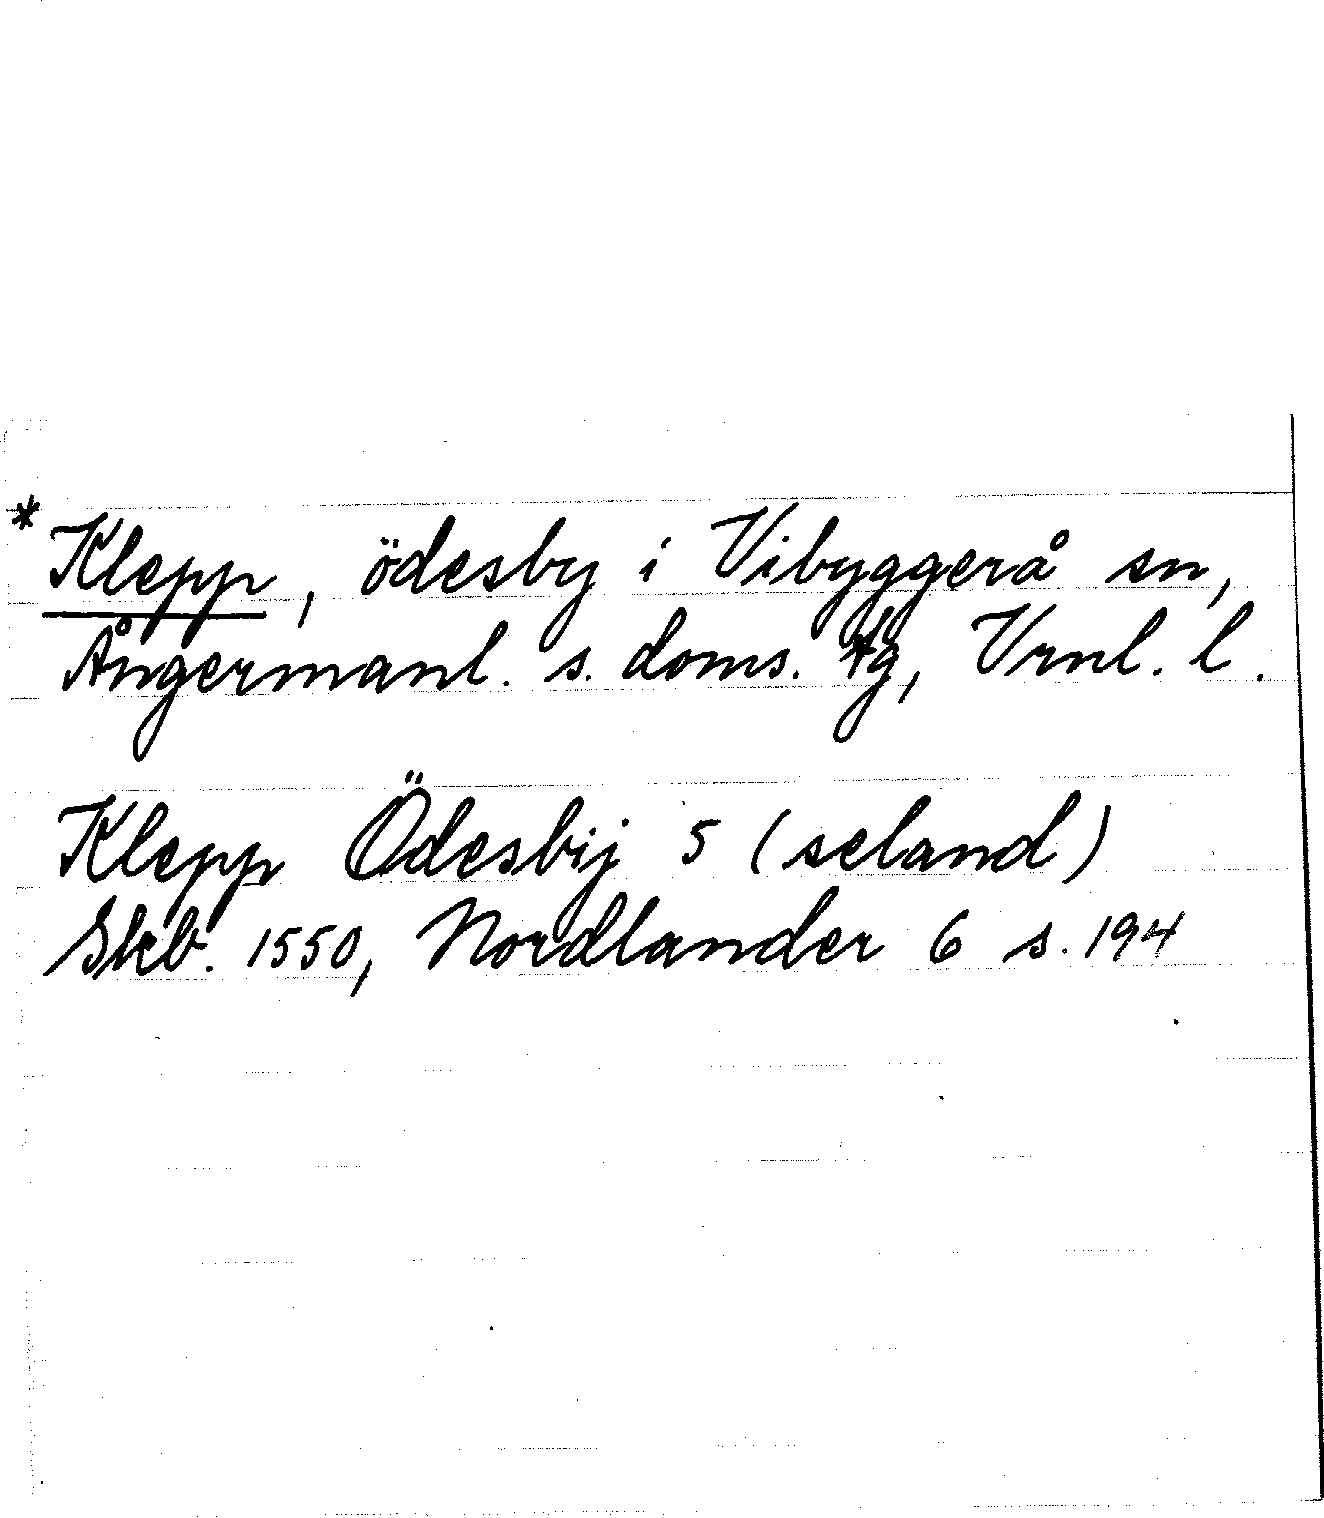 * Klepp, ödesby i Vibyggerå sn,
Ångermanl. s. doms. tg, Vrnl. l.
Klepp Ödesbij 5 (seland)
Skb. 1550, Nordlander 6 s. 194